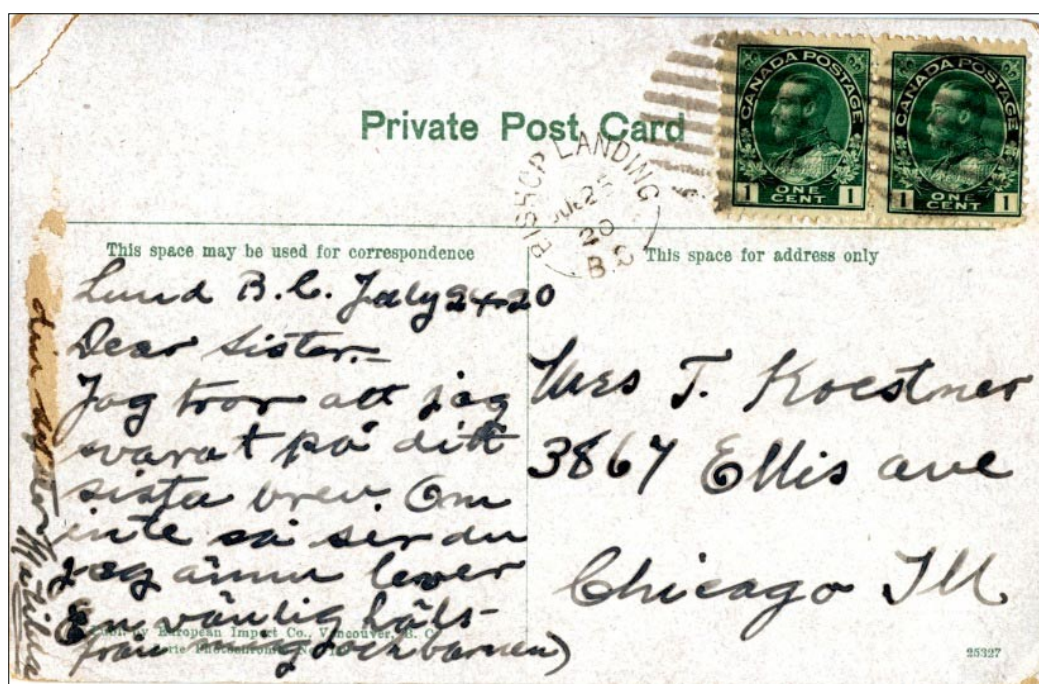 Private Post Card
CANADA POSTAGE
1 ONE CENT 1
CANADA POSTAGE
1 ONE CENT 1
BISHOP LANDING
20
B.C
This space may be used for correspondence
This space for address only
Lund B.C. July 24-20
Dear Sister.-
Jag tror att jag
svarat på ditt
sista brev. Om
inte så ser du
jag ännu lever
En vänlig häls-
från mig och barnen)
din syster Matilda
Mrs T. Koestner
3867 Ellis ave
Chicago Ill
Publ. by European Import Co., Vancouver, B. C.
25327